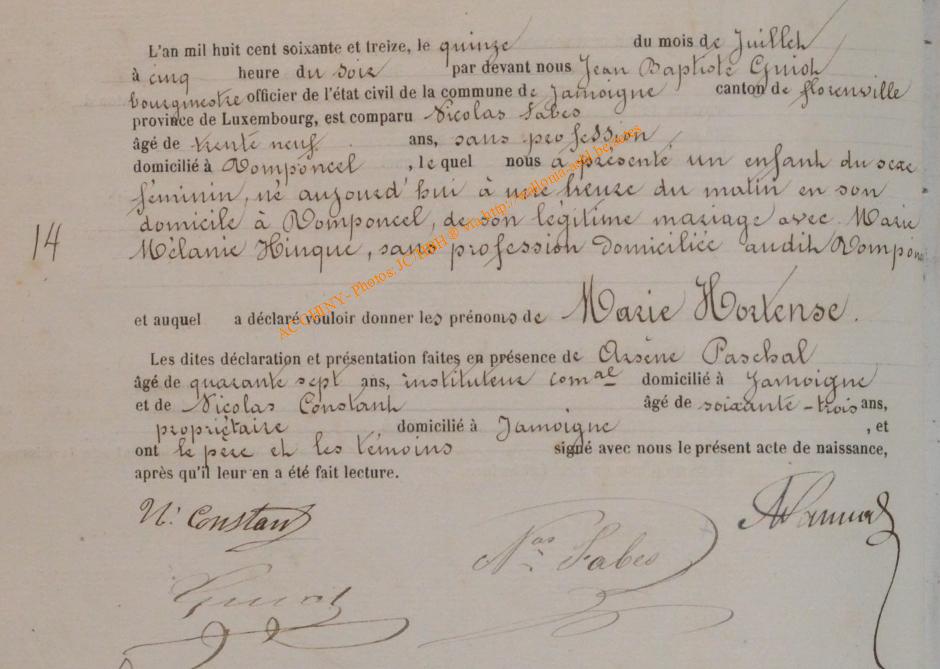 L'an mil huit cent soixante et treize, le quinze du mois de Juillet
à cinq heure du soir par devant nous Jean Baptiste Guiot
bourgmestre officier de l'état civil de la commune de Jamoigne canton de florenville
province de Luxembourg, est comparu Nicolas Sabes
âgé de trente neuf ans, sans profession,
domicilié à Romponcel, le quel nous a présenté un enfant du sexe
féminin, né aujourd'hui à une heure du matin en son
domicile à Romponcel, de son légitime mariage avec Marie
14
Mélanie Hinque, sans profession domiciliée audit Rompon
et auquel a déclaré vouloir donner les prénoms de Marie Hortense.
Les dites déclaration et présentation faites en présence de Arsène Paschal
âgé de quarante sept ans, instituteur comal domicilié à Jamoigne
et de Nicolas Constant âgé de soixante-trois ans,
propriétaire domicilié à Jamoigne, et
ont le père et les témoins signé avec nous le présent acte de naissance,
après qu'il leur en a été fait lecture.
N. Constant
Nas Sabes
Guiot